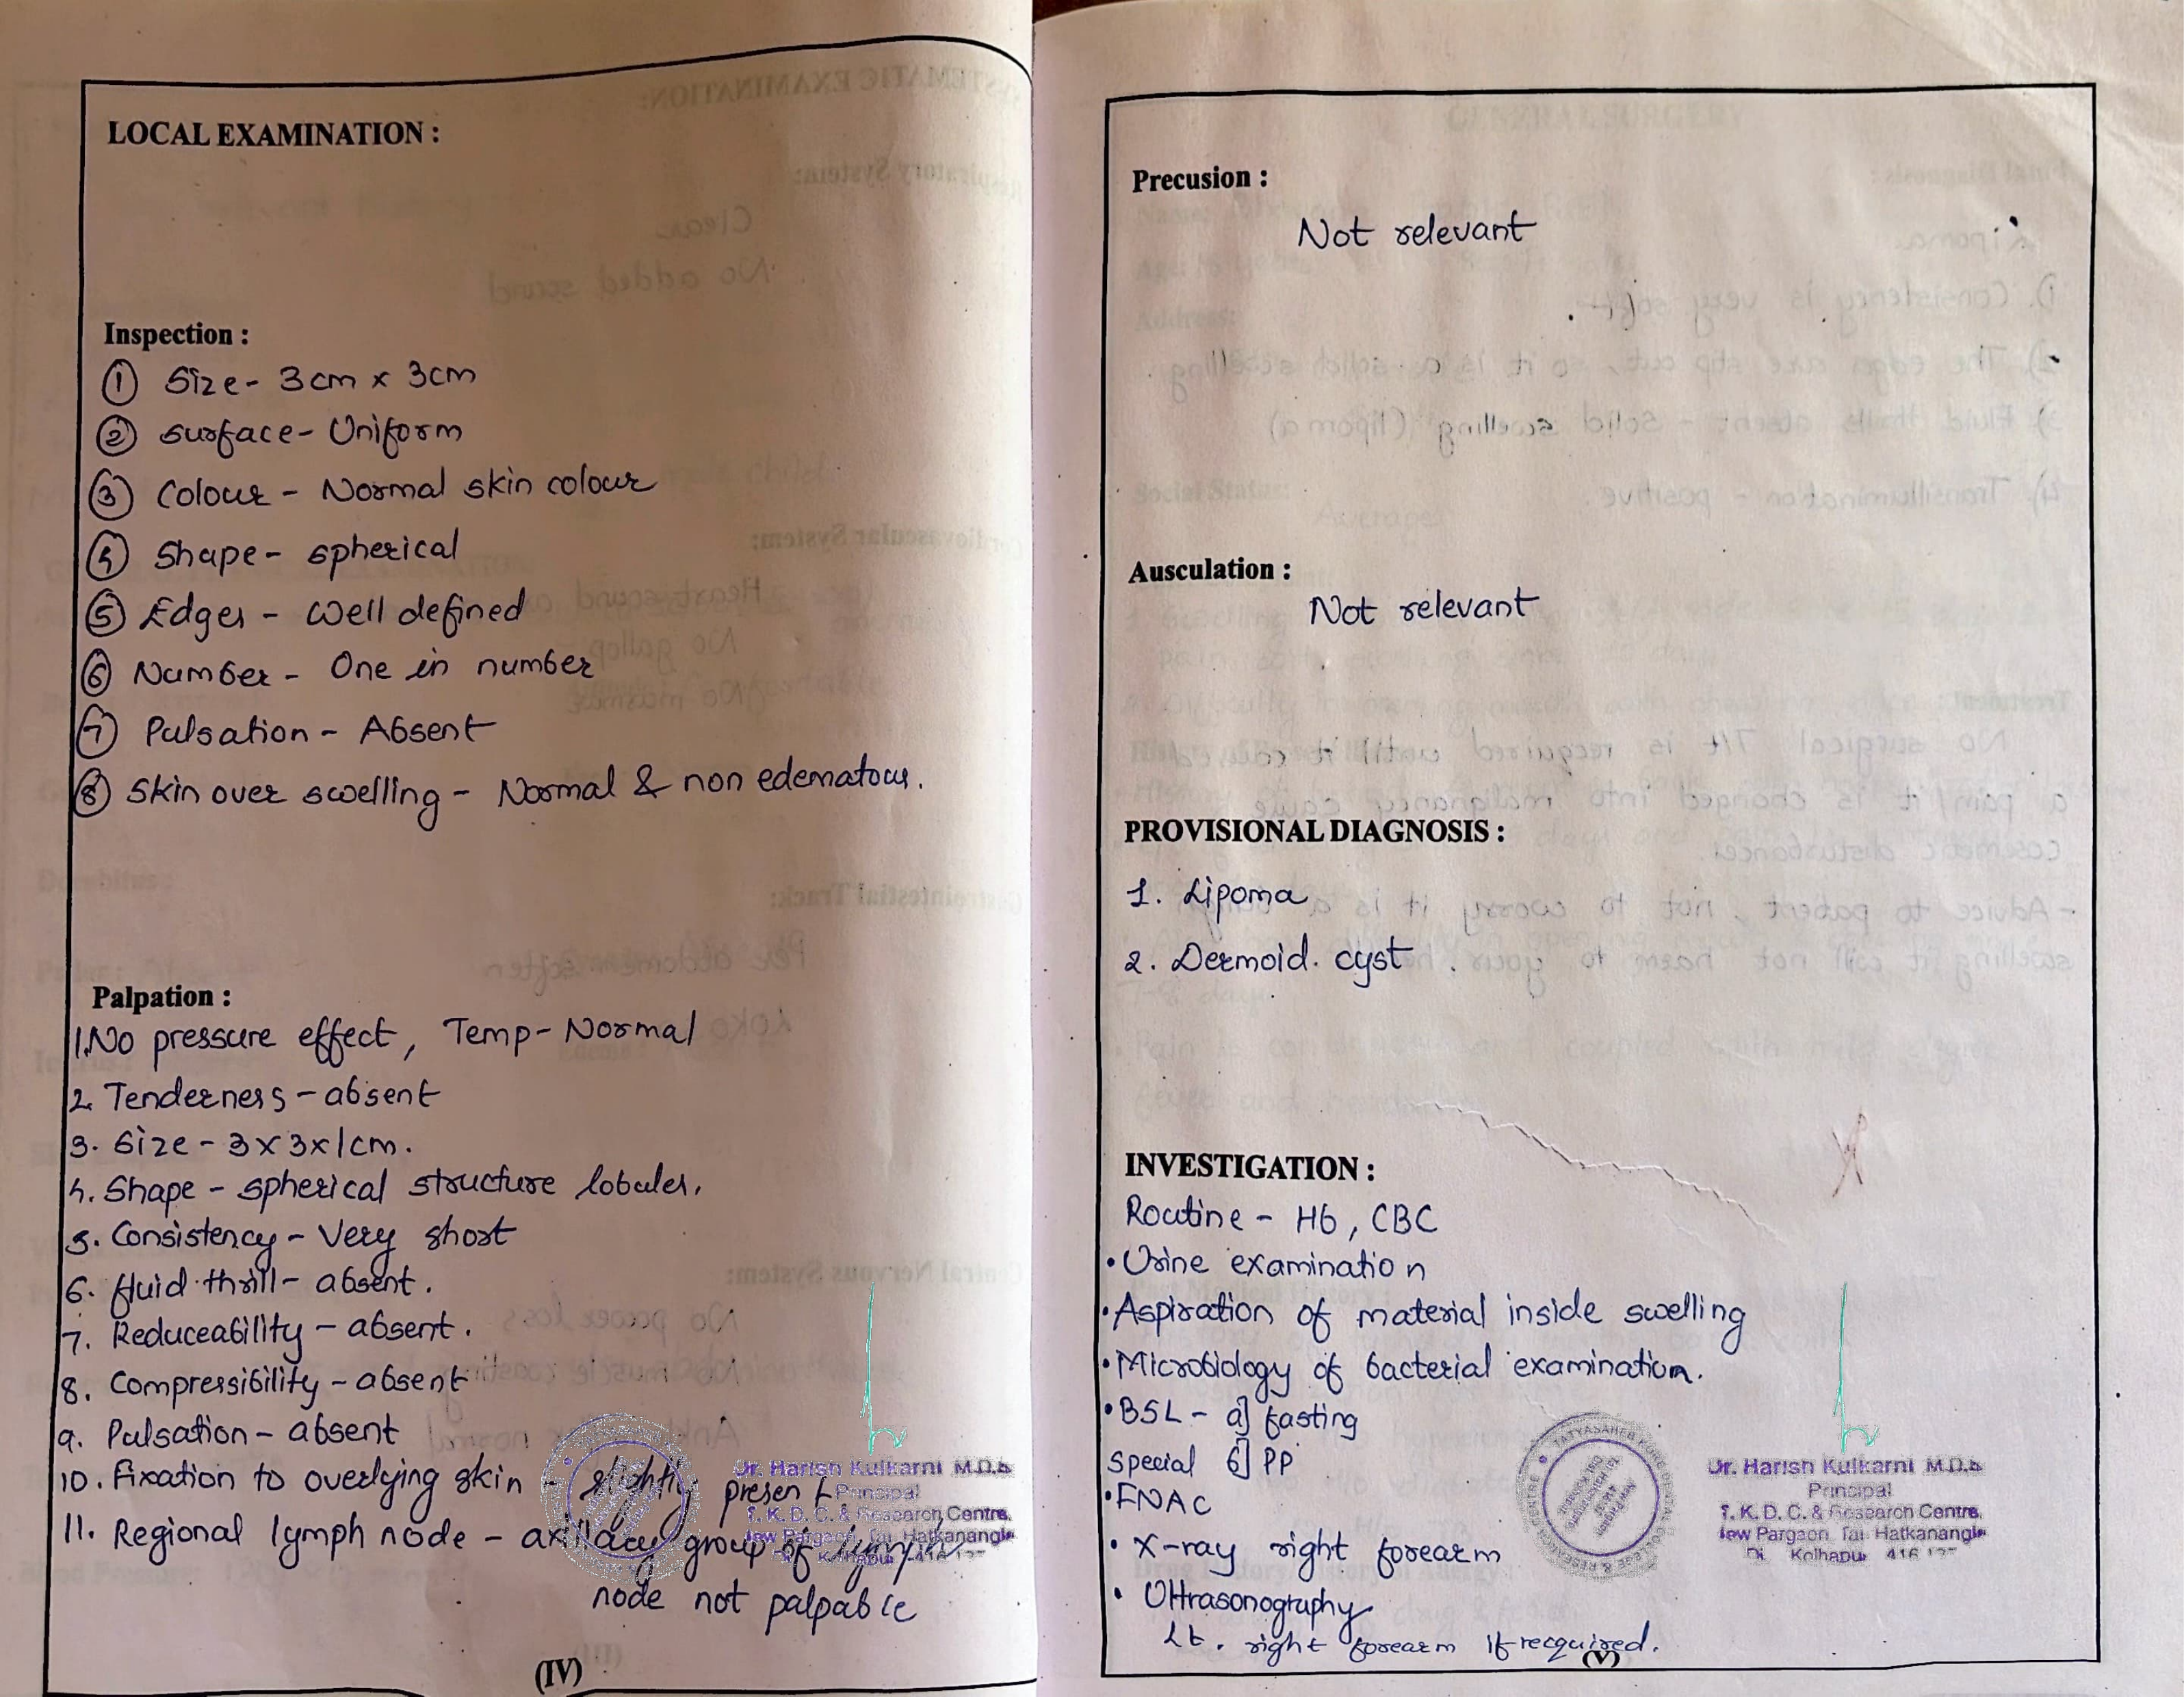 LOCAL EXAMINATION :
Inspection :
① Size - 3cm x 3cm
② Surface - Uniform
③ Colour - Normal skin colour
④ Shape - spherical
⑤ Edges - Well defined
⑥ Number - One in number
⑦ Pulsation - Absent
⑧ Skin over swelling - Normal & non edematous.
Palpation :
1. No pressure effect, Temp - Normal
2. Tenderness - absent
3. Size - 3 x 3 x 1cm.
4. Shape - spherical structure lobules.
5. Consistency - Very short
6. fluid thrill - absent.
7. Reduceability - absent.
8. Compressibility - absent
9. Pulsation - absent
10. Fixation to overlying skin - slightly present
11. Regional lymph node - axillary group of lymph
node not palpable
Dr. Harish Kulkarni M.D.S
Principal
T. K. D. C. & Research Centre,
New Pargaon, Tal. Hatkanangle
Kolhapur 416
(IV)
Precusion :
Not relevant
Ausculation :
Not relevant
PROVISIONAL DIAGNOSIS :
1. Lipoma
2. Dermoid. cyst
INVESTIGATION :
Routine - Hb, CBC
• Urine examination
• Aspiration of material inside swelling
• Microbiology of bacterial examination.
• BSL - a] fasting
special b] PP
• FNAC
• X-ray right forearm
• Ultrasonography
Lt. right forearm if recquired.
TATYASAHEB KORE DENTAL COLLEGE & RESEARCH CENTRE
New Pargaon
Dr. Harish Kulkarni M.D.S
Principal
T. K. D. C. & Research Centre,
New Pargaon, Tal. Hatkanangle
Di. Kolhapur 416
(V)